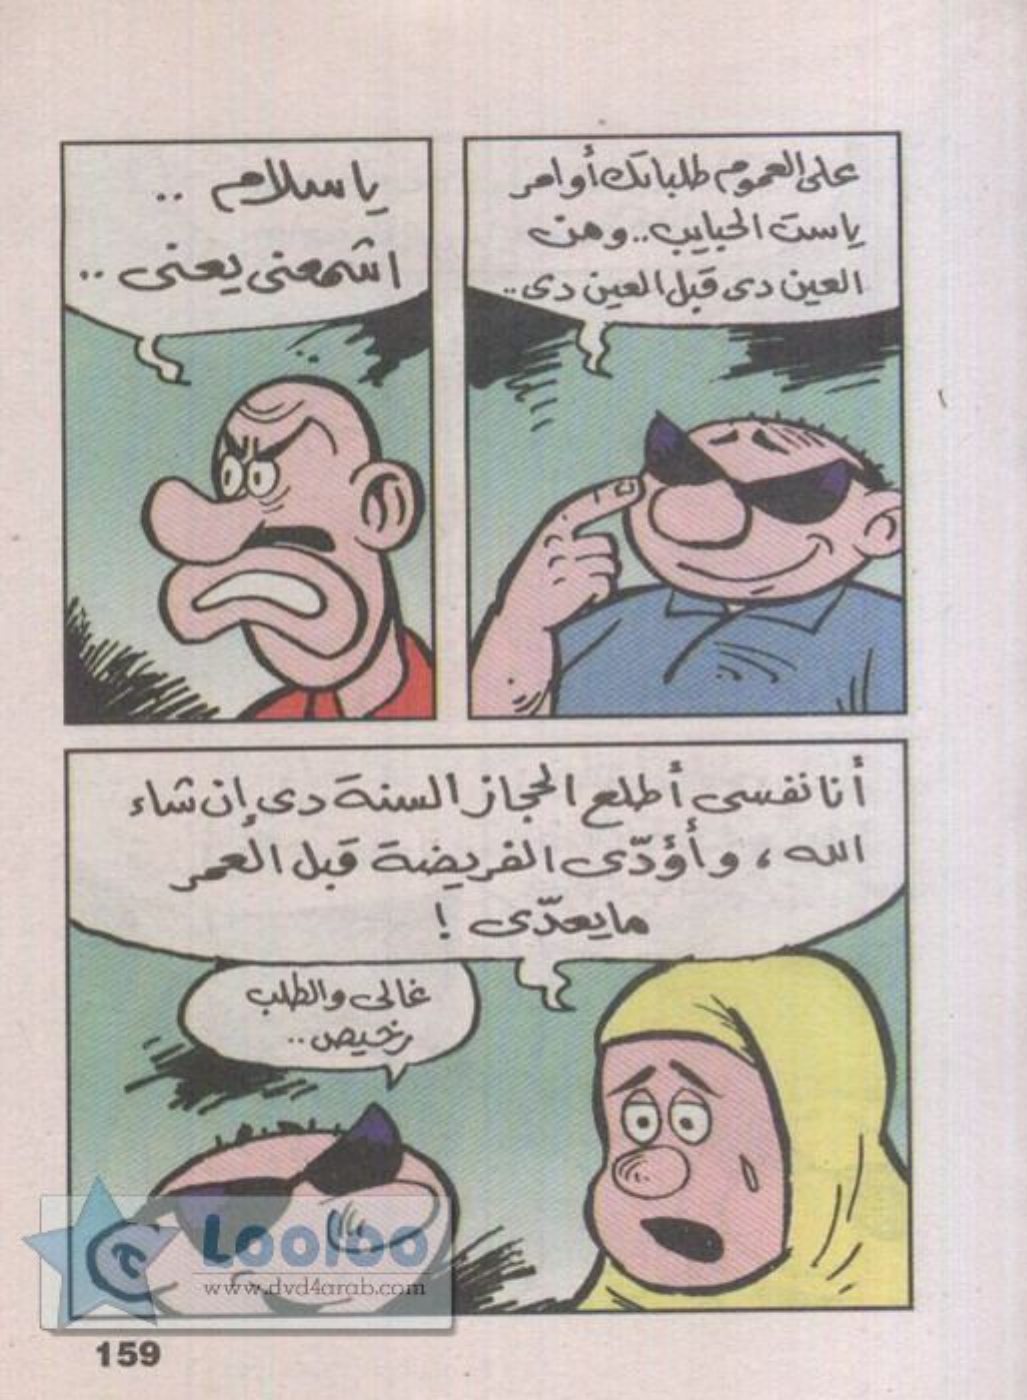 على العموم طلباتك أوامر
ياست الحبايب.. ومن
العين دى قبل العين دى..
ياسلام ..
اشمعنى يعنى ..
أنا نفسى أطلع الحجاز السنة دى إن شاء
الله ، وأؤدّى الفريضة قبل العمر
مايعدّى !
غالى والطلب
رخيص..
Loolbo
www.dvd4arab.com
159